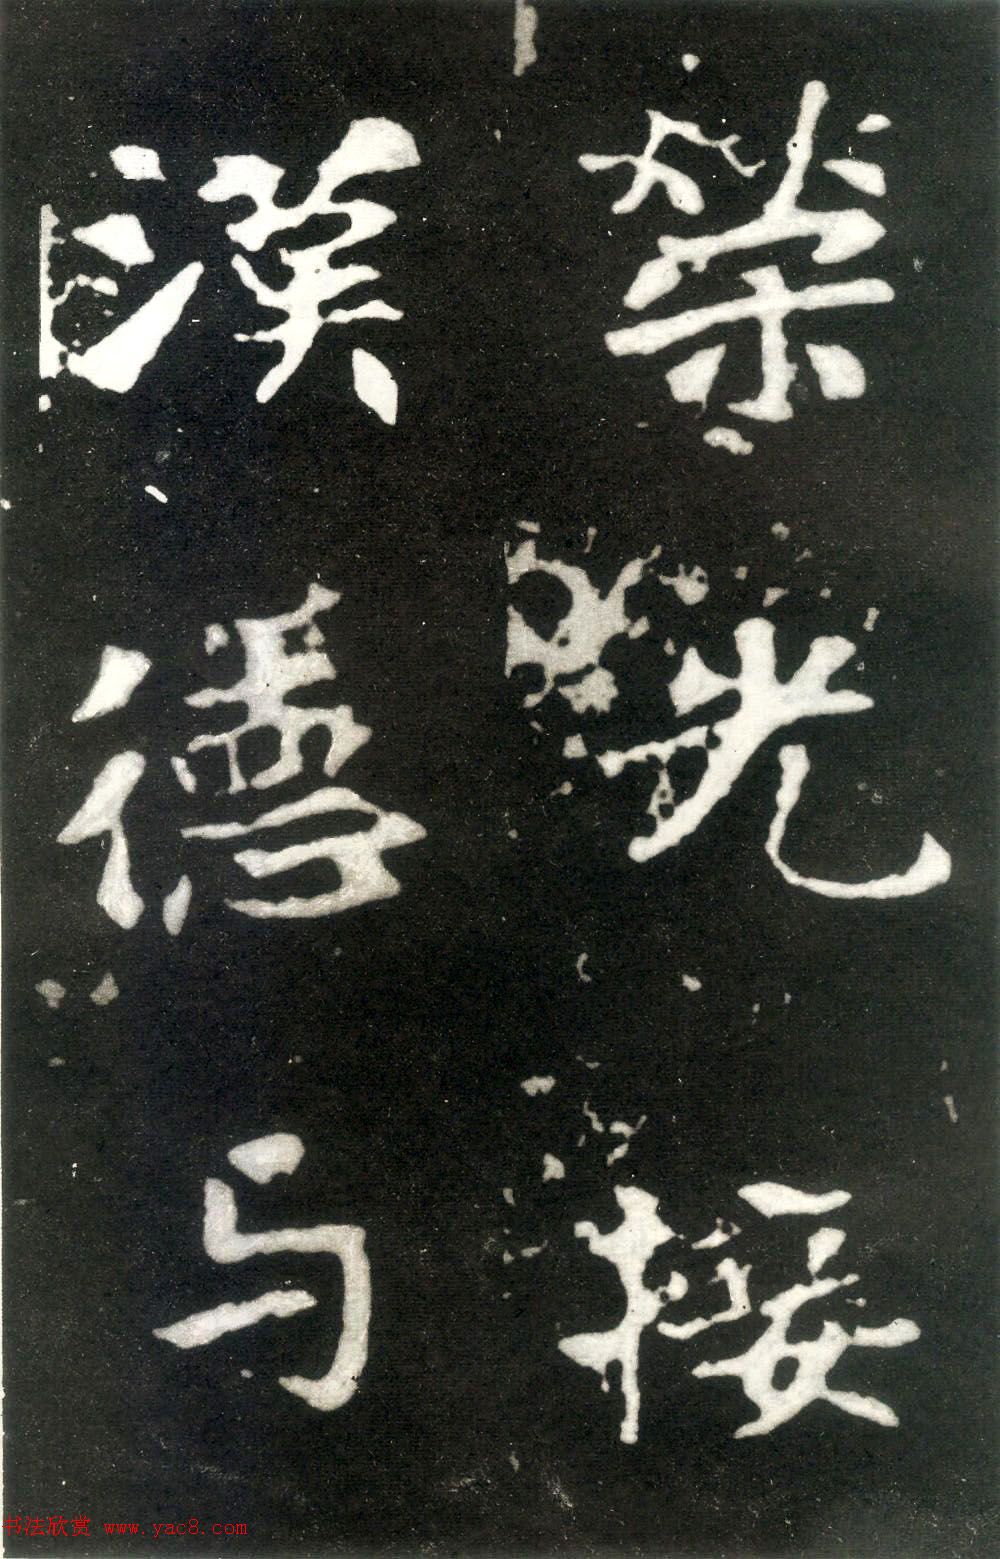 榮光接
漢德与
书法欣赏 www.yac8.com